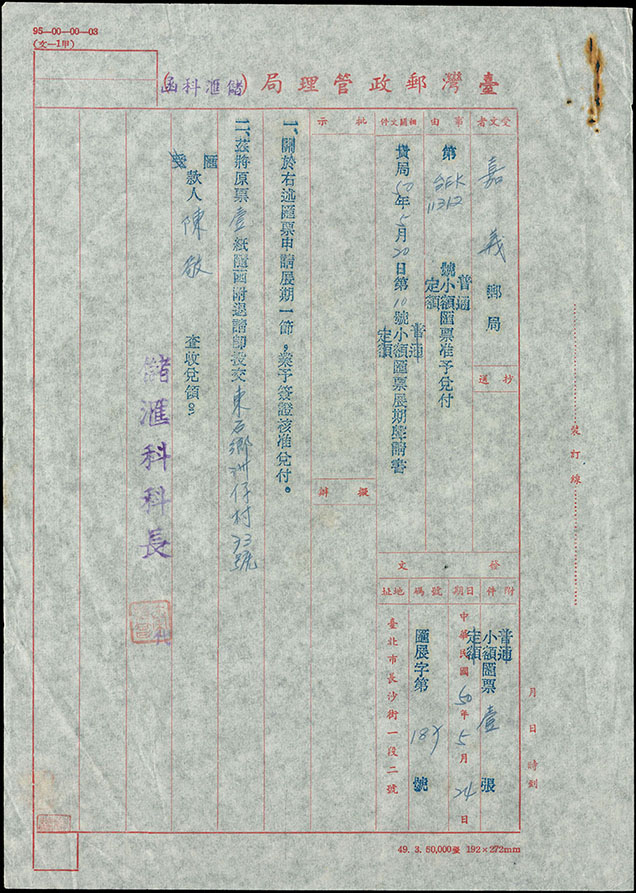 95—00—00—03
(文—1甲)
臺灣郵政管理局(儲滙科函)
受文者
嘉義郵局
抄送
事由
第 11312 號普通小額定額匯票准予兌付
相關文件
貴局50年5月20日第10號普通小額定額匯票展期聲請書
批示
擬辦
一、關於右述匯票申請展期一節，業予簽證核准兌付。
二、茲將原票壹紙隨函附退請卽投交東石鄉洲仔村33號
匯款人陳敏 查收兌領。
儲滙科科長
發文
附件
普通小額定額匯票壹張
日期
中華民國50年5月24日
號碼
匯展字第 號
地址
臺北市長沙街一段二號
裝訂線
月 日 時刻
49. 3. 50,000 192×272mm